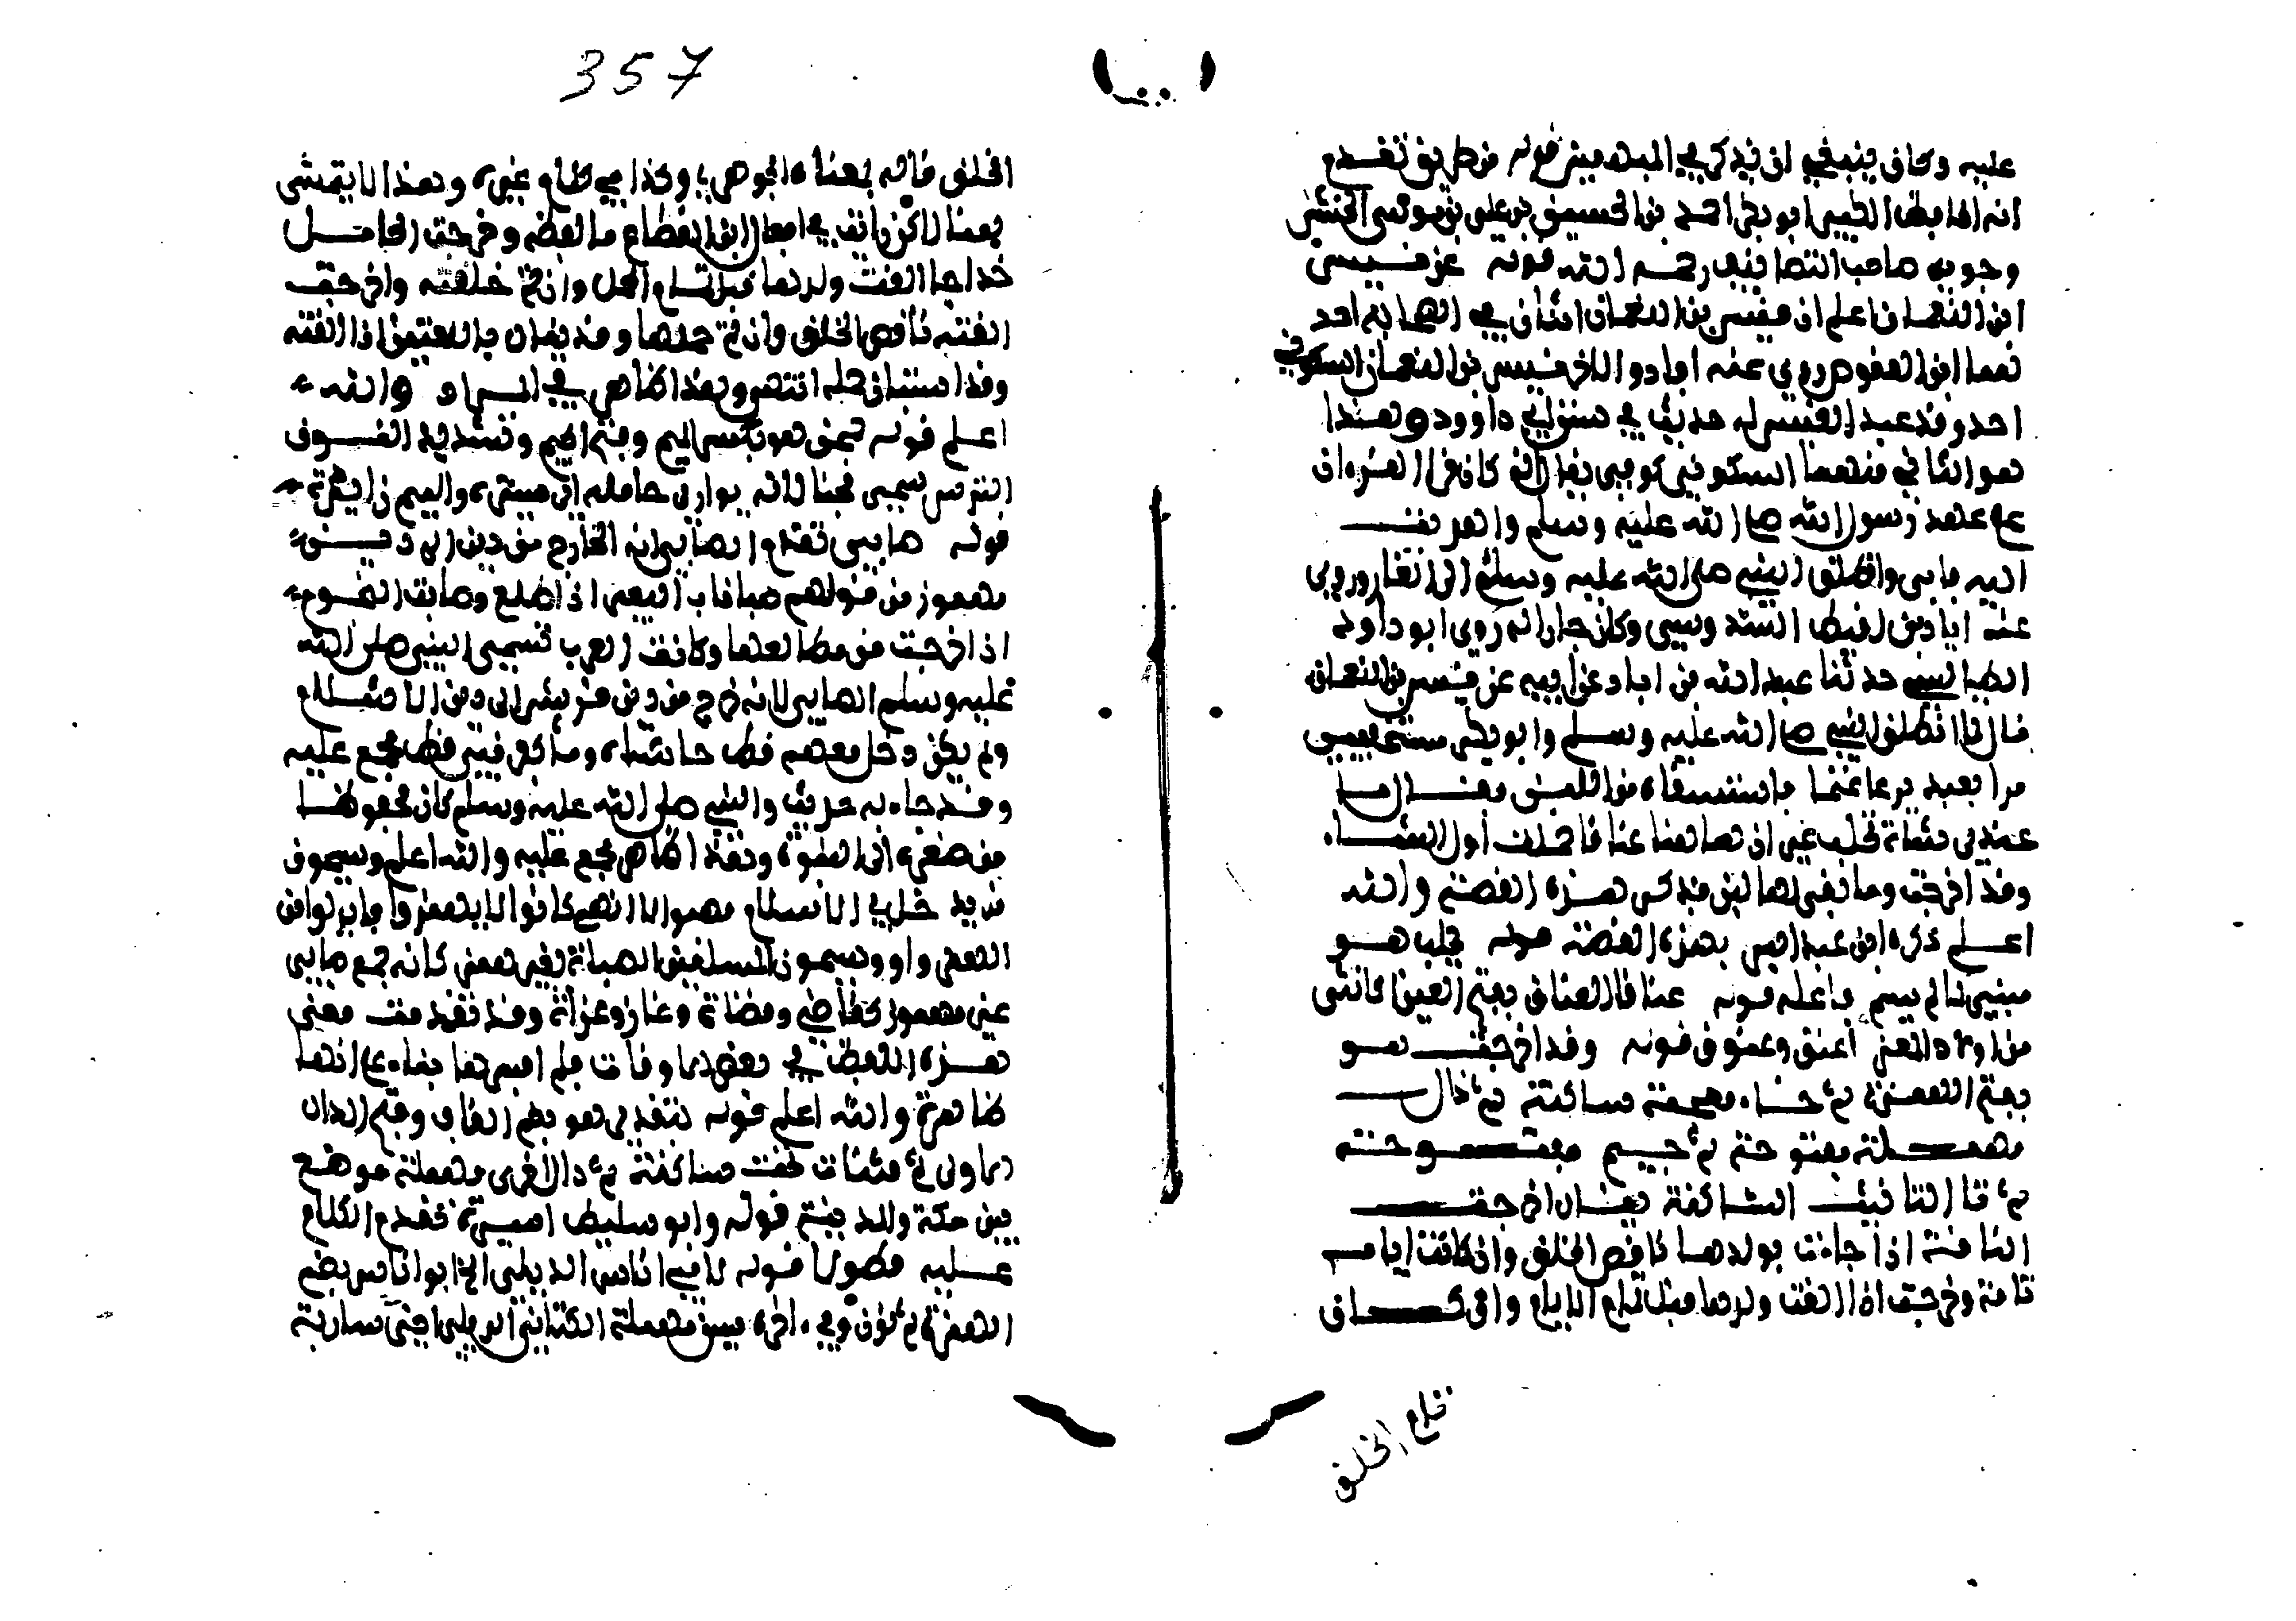 357
عليه وكان ينبغي ان يذكر في المبهمين قوله من طريق تقدم
انه الحافظ الكبير ابو بكر احمد بن الحسين بن علي بن موسى
وجردي صاحب التصانيف رحمه الله قوله عن قيس
ابن النعمان اعلم ان قيس بن النعمان اثنان في الصحابة احد
هما ابن روى عنه اياد والاخر قيس بن النعمان السكوني
احد وفد عبد القيس له حديث في سنن ابي داوود وهذا
هو الثاني منهما السكوني كوفي يقال انه كان قرا القران
على عهد رسول الله صلى الله عليه وسلم
النبي صلى الله عليه وسلم الى الغار وروى
عنه اياد بن لقيط السدوسي وكان جارا له روى ابو داود
الطيالسي حدثنا عبد الله بن اياد عن ابيه عن قيس بن النعمان
قال لما انطلق النبي صلى الله عليه وسلم وابو بكر مستخفيين
مرا بعبد يرعا غنما فاستسقاه من اللبن فقال ما
عندي شاة تحلب غير ان هاهنا عناقا حملت اول الشتاء
وقد اخرجت وما بقي لها لبن فذكر هذه القصة والله
اعلم ذكره ابن عبد البر بهذه القصة قوله تحلب هو
مبني لما لم يسم فاعله قوله عناقا العناق بفتح العين الانثى
من اولاد المعز اعنق وعنوق قوله وقد اخرجت هو
بفتح الهمزة ثم خاء معجمة ساكنة ثم دال
مهملة مفتوحة ثم جيم مفتوحة
ثم تا التانيث الساكنة يقال اخرجت
الناقة اذا جاءت بولدها ناقص الخلق وان كانت ايامه
تامة وخرجت اذا القت ولدها قبل تمام الايام وان كان
تام الخلق
الخلق قاله بمعناه الجوهري وكذا في كلام غيره وهذا لا يتمشى
هنا لاكن رايت في افعال ابن القطاع ما لفظه وخرجت الحامل
خداجا القت ولدها قبل تمام الحمل وان تم خلقه واخرجت
القته ناقص الخلق وان تم حملها وقد يقال باللغتين اذا القته
وقد استبان حمله انتهى وهذا ظاهر في المراد والله
اعلم قوله بمجن هو بكسر الميم وفتح الجيم وتشديد النون
الترس سمي مجنا لانه يواري حامله اي يستره والميم زايدة
قوله صابي تقدم الصابي انه الخارج من دين الى دين
مهموز من قولهم صبا ناب البعير اذا طلع وصات النجوم
اذا خرجت من مطالعها وكانت العرب تسمي النبي صلى الله
عليه وسلم الصابي لانه خرج من دين قريش الى دين الاسلام
ولم يكن دخل معهم قط حاشاه وما كفر نبي قط مجمع عليه
وقد جاء به حديث والنبي صلى الله عليه وسلم كان محفوظا
من صغره الى النبوة وهذا ظاهر مجمع عليه والله اعلم ويسمون
من يدخل في الاسلام مصبوا لانهم كانوا لا يهمزون فابدلوا من
الهمزة واوا ويسمون المسلمين الصباة بغير همز كانه جمع صابي
غير مهموز كقاضي وقضاة وغاز وغزاة وقد تقدمت معنى
هذه اللفظة في بعضها وفات فلم افسرها بقاء على انها
ظاهرة والله اعلم قوله بقديد هو بضم القاف وفتح الدال
الاولى ثم مثناة تحت ساكنة ثم دال اخرى مهملة موضع
بين مكة والمدينة قوله وابو سليط اسيرة تقدم الكلام
عليه مطولا قوله لابي اناس الديلي الخ ابو اناس بضم
الهمزة ثم نون وفي اخره سين مهملة الكناني الديلي ابن سارية